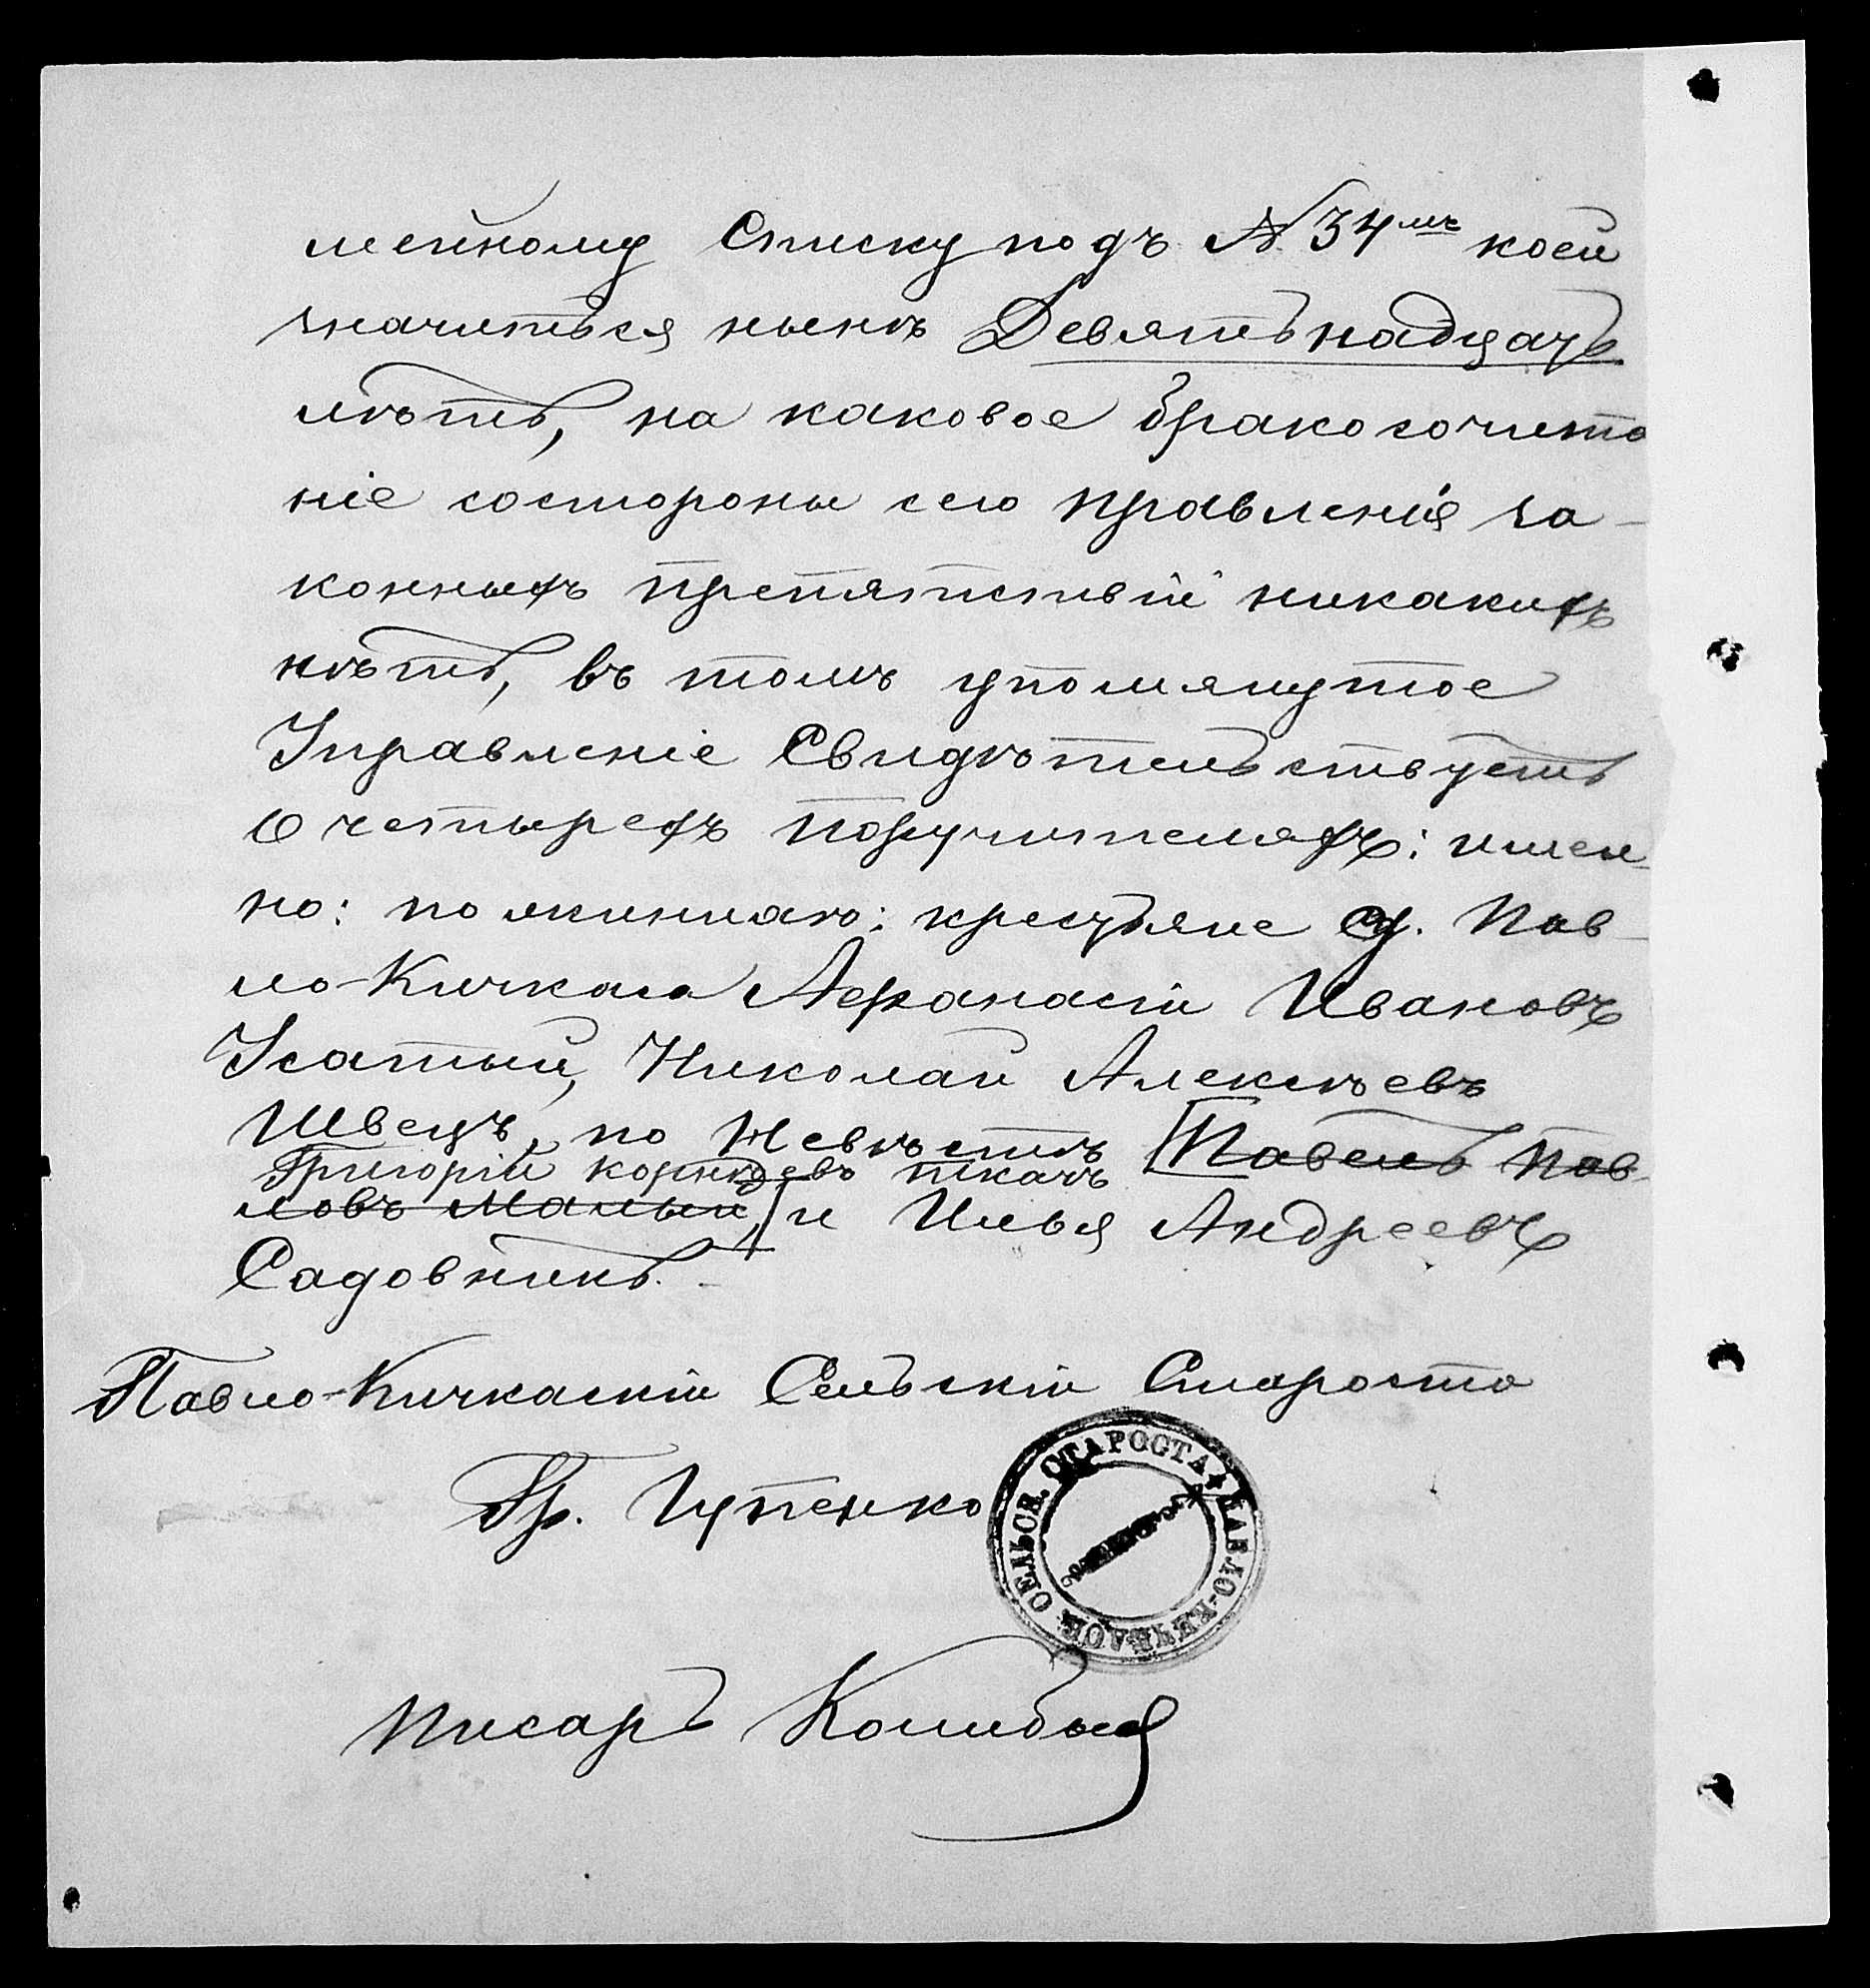 мейному Списку подъ № 34мъ коей
значиться нынѣ Девятьнадцать
лѣтъ, на каковое бракосочета
ніе состороны сего правленія за-
конныхъ препятствій никакихъ
нѣтъ, въ томъ упомянутое
Управленіе Свидѣтельствуетъ
О четырехъ поручителяхъ: имен-
но: по женихаю: крестьяне с. Пав-
ло-Кичкаса Афанасій Ивановъ
Усатый, Николай Алексѣевъ
Швецъ, по Невѣстѣ Павелъ Пав-
Григорій Корнѣевъ Ткачъ
ловъ Малый, и Илья Андреевъ
Садовникъ.
Павло-Кичкаскій Сельскій Староста
Гр. Цупенко
СЕЛЬСК. СТАРОСТА ПАВЛО-КИЧКАСК.
писарь